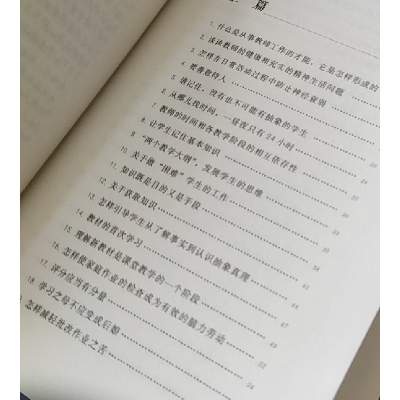 篇
1. 什么是从事教师工作的才能，它是怎样形成的
2. 谈谈教师的健康和充实的精神生活问题
3. 怎样在日常活动过程中防止神经衰弱
4. 要善待
5. 请记住，没有也不可能有抽象的学生
6. 从哪儿找时间，一昼夜只有24小时
7. 教师的时间和各教学阶段的相互依存性
8. 让学生记住基本知识
9. "两个教学大纲"，发展学生的思维
10. 关于做"困难"学生的工作
11. 知识既是目的又是手段
12. 关于获取知识
13. 怎样引导学生从了解事实到认识抽象真理
14. 教材的首次学习
15. 理解新教材是课堂教学的一个阶段
16. 怎样使家庭作业的检查成为有效的脑力劳动
17. 评分应当有分量
18. 学习之母不应变成后娘
怎样减轻批改作业之苦